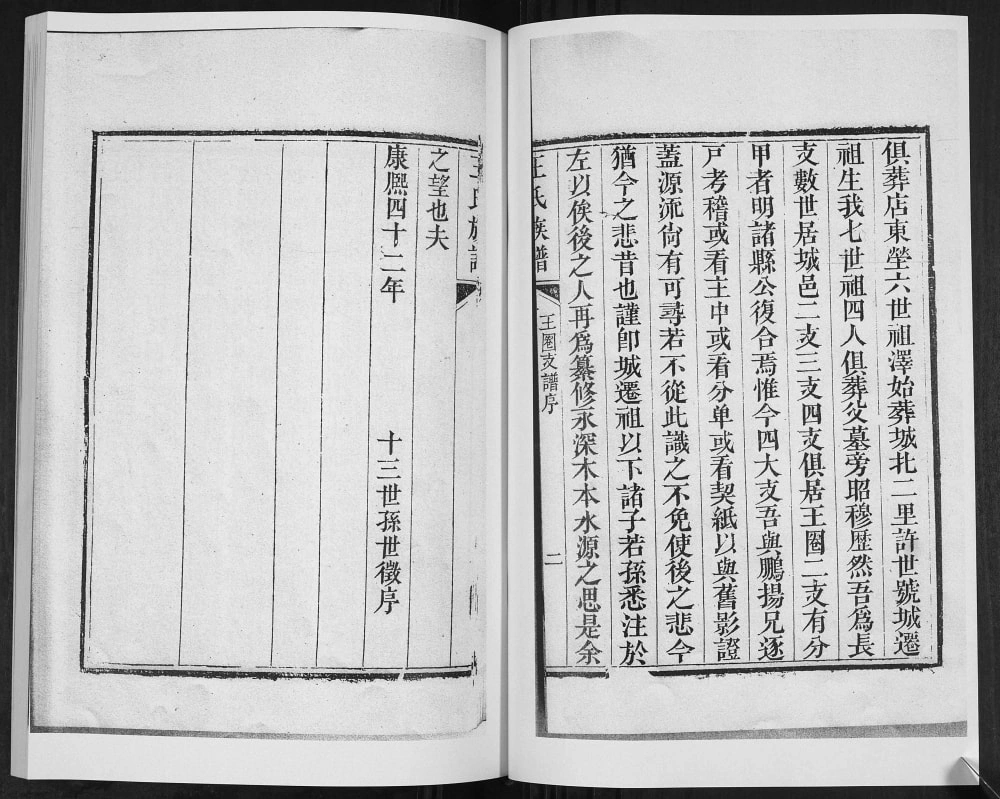 俱葬店東塋六世祖澤始葬城北二里許世號城遷
祖生我七世祖四人俱葬父墓旁昭穆歷然吾爲長
支數世居城邑二支三支四支俱居王圈二支有分
甲者明諸縣公復合焉惟今四大支吾與鵬揚兄逐
戸考稽或看主中或看分单或看契紙以與舊影證
蓋源流尙有可尋若不從此識之不免使後之悲今
猶今之悲昔也謹卽城遷祖以下諸子若孫悉注於
左以俟後之人再爲纂修永深木本水源之思是余
王氏族譜
王圈支譜序
二
王氏族譜
之望也夫
康熈四十二年
十三世孫世徵序